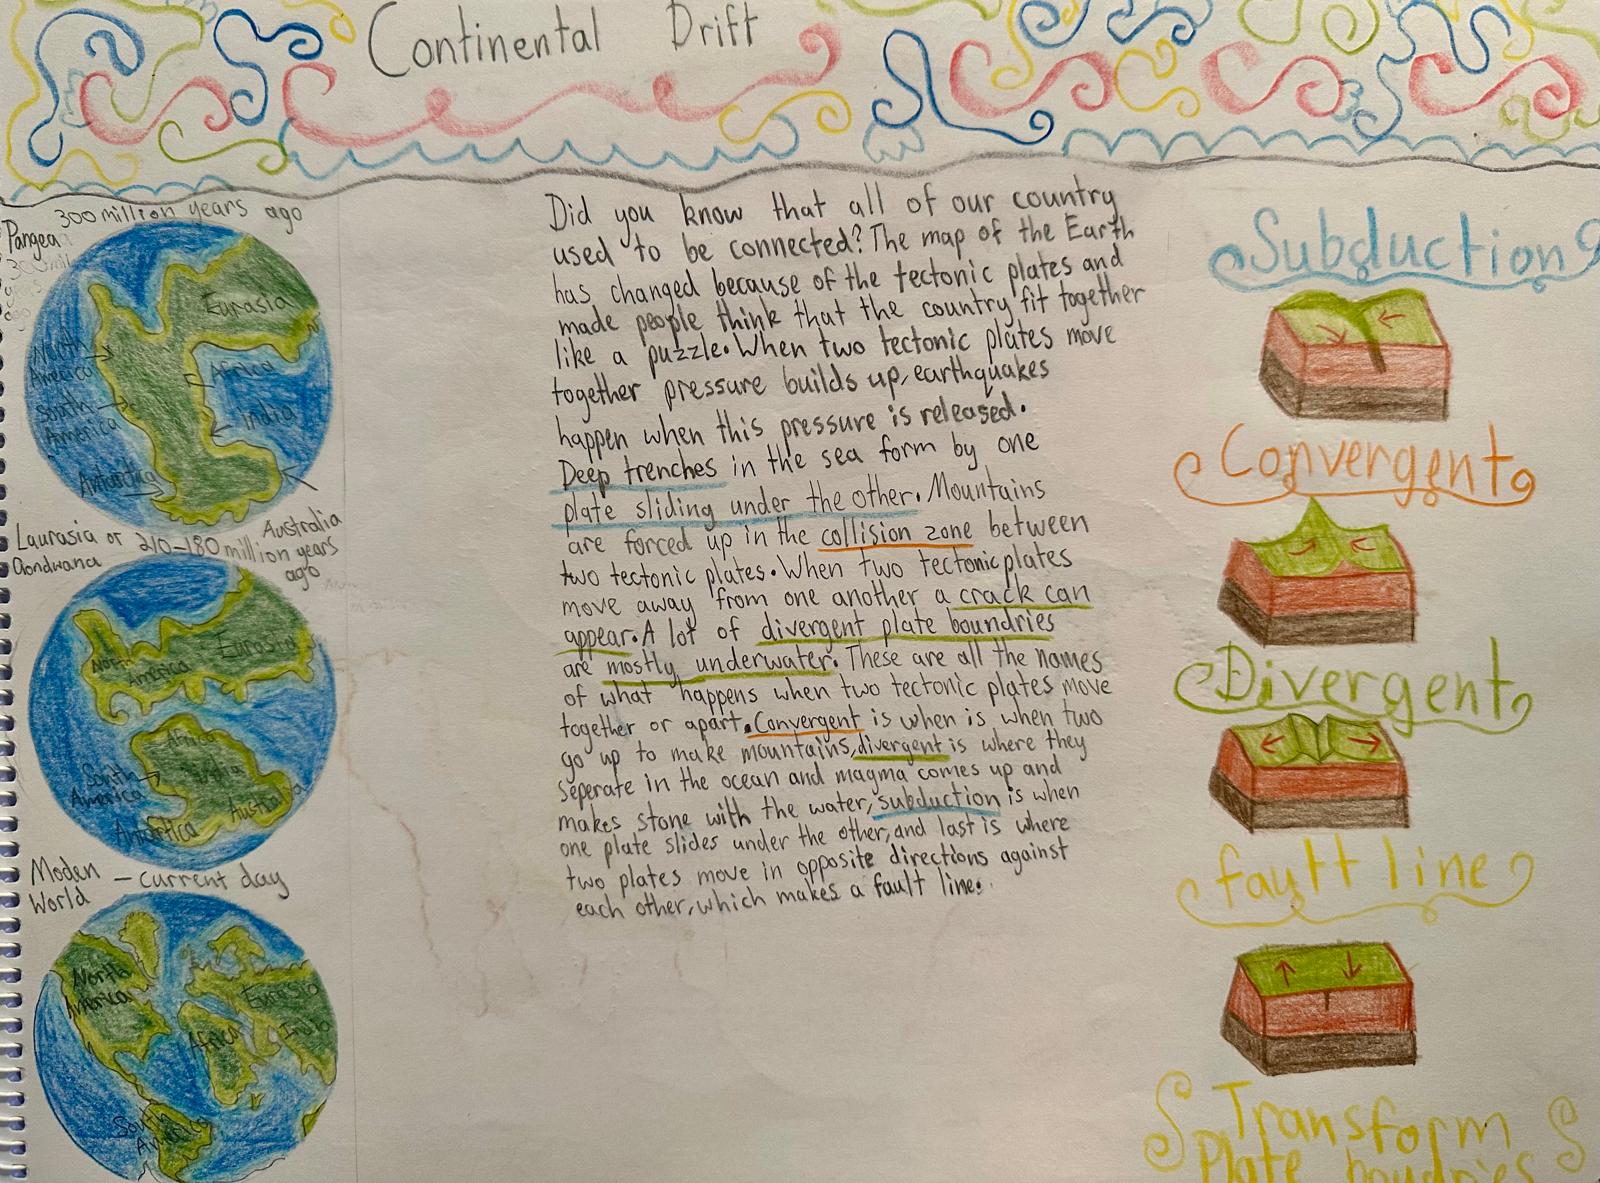 Continental Drift
300 million years ago
Pangea
300 mil
years
ago
Eurasia
North
America
Africa
South
America
India
Antarctica
Australia
Laurasia or 210-180 million years
Gondwana
ago
North
America
Eurasia
Africa
South
America
India
Australia
Antartica
Moden
World
- current day
North
America
Eurasia
Africa
India
South
America
Did you know that all of our country
used to be connected? The map of the Earth
has changed because of the tectonic plates and
made people think that the country fit together
like a puzzle. When two tectonic plates move
together pressure builds up, earthquakes
happen when this pressure is released.
Deep trenches in the sea form by one
plate sliding under the other. Mountains
are forced up in the collision zone between
two tectonic plates. When two tectonic plates
move away from one another a crack can
appear. A lot of divergent plate boundries
are mostly underwater. These are all the names
of what happens when two tectonic plates move
together or apart. Convergent is when is when two
go up to make mountains, divergent is where they
seperate in the ocean and magma comes up and
makes stone with the water, subduction is when
one plate slides under the other, and last is where
two plates move in opposite directions against
each other, which makes a fault line.
Subduction
Convergent
Divergent
fault line
Transform
Plate boundries